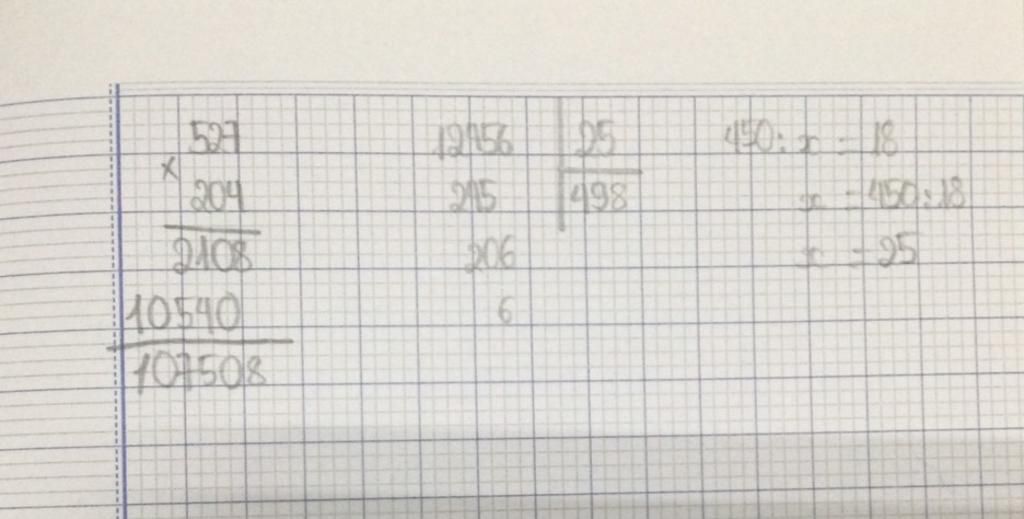 527
×
204
2108
10540
107508
12456 25
245 498
206
6
450 : x = 18
x = 450 : 18
x = 25